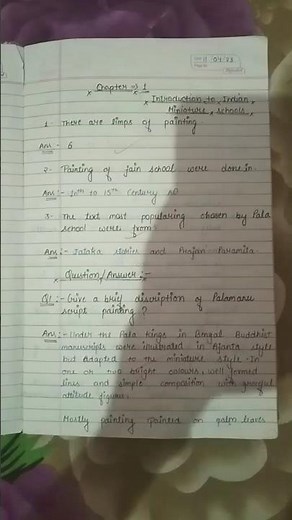 01 23
Chapter → 1
Introduction to Indian
Miniature schools
1. There are limps of painting
Ans - 6
2- Painting of jain school were done in
Ans:- 10th to 15th Century AD
3- The text most popularing chosen by Pala
school were from
Ans:- Jataka stories and Prajan Paramita
Question/Answer:-
Q1:- Give a brief discription of Palamanu
script painting?
Ans:- Under the Pala kings in Bengal Buddhist
manuscripts were illustrated in Ajanta style
but adapted to the miniature style in
one or two bright colours, well formed
lines and simple composition with graceful
attitude figures.
Mostly painting painted on palm leaves